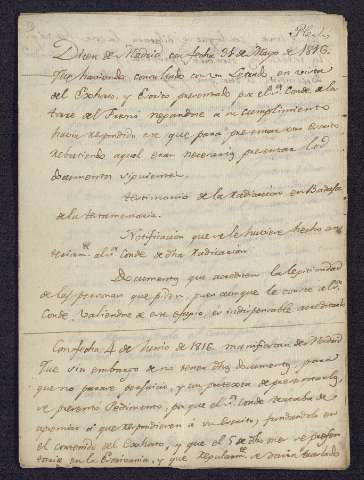 Dicen de Madrid con fecha 25 de Mayo de 1816.
Que haviendo consultado con un Letrado en vista
del Exhorto, y Escrito presentado por el Sr. Conde de la
torre del Fresno negandose a su cumplimiento
havia respondido ese que para presentar un escrito
rebatiendo aquel eran necesarios presentar los
documentos siguientes.
testimonio de la radicacion en Badajoz
de la testamentaria.
Notificacion que se le huviese hecho
al Sr. Conde de dha radicacion.
Documentos que acrediten la legitimidad
de las personas que piden, pues aunque le conste al Sr.
Conde, valiendose de este efugio, es indispensable acreditarlo
Con fecha 4 de Junio de 1816. manifiestan de Madrid
Que sin embargo de no tener dhos documentos, para
que no parase perjuicio, y con protexta de presentarlos,
se presento Pedimento, porque el Sr. Conde
a que respondieran a su escrito, fundandolo en
el contenido del Exhorto, y que el 5 de dho mes se
en la Escrivania, y que se daria traslado